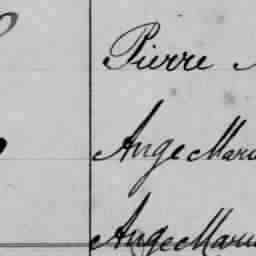 Pierre
Ange Mari
Ange Marie